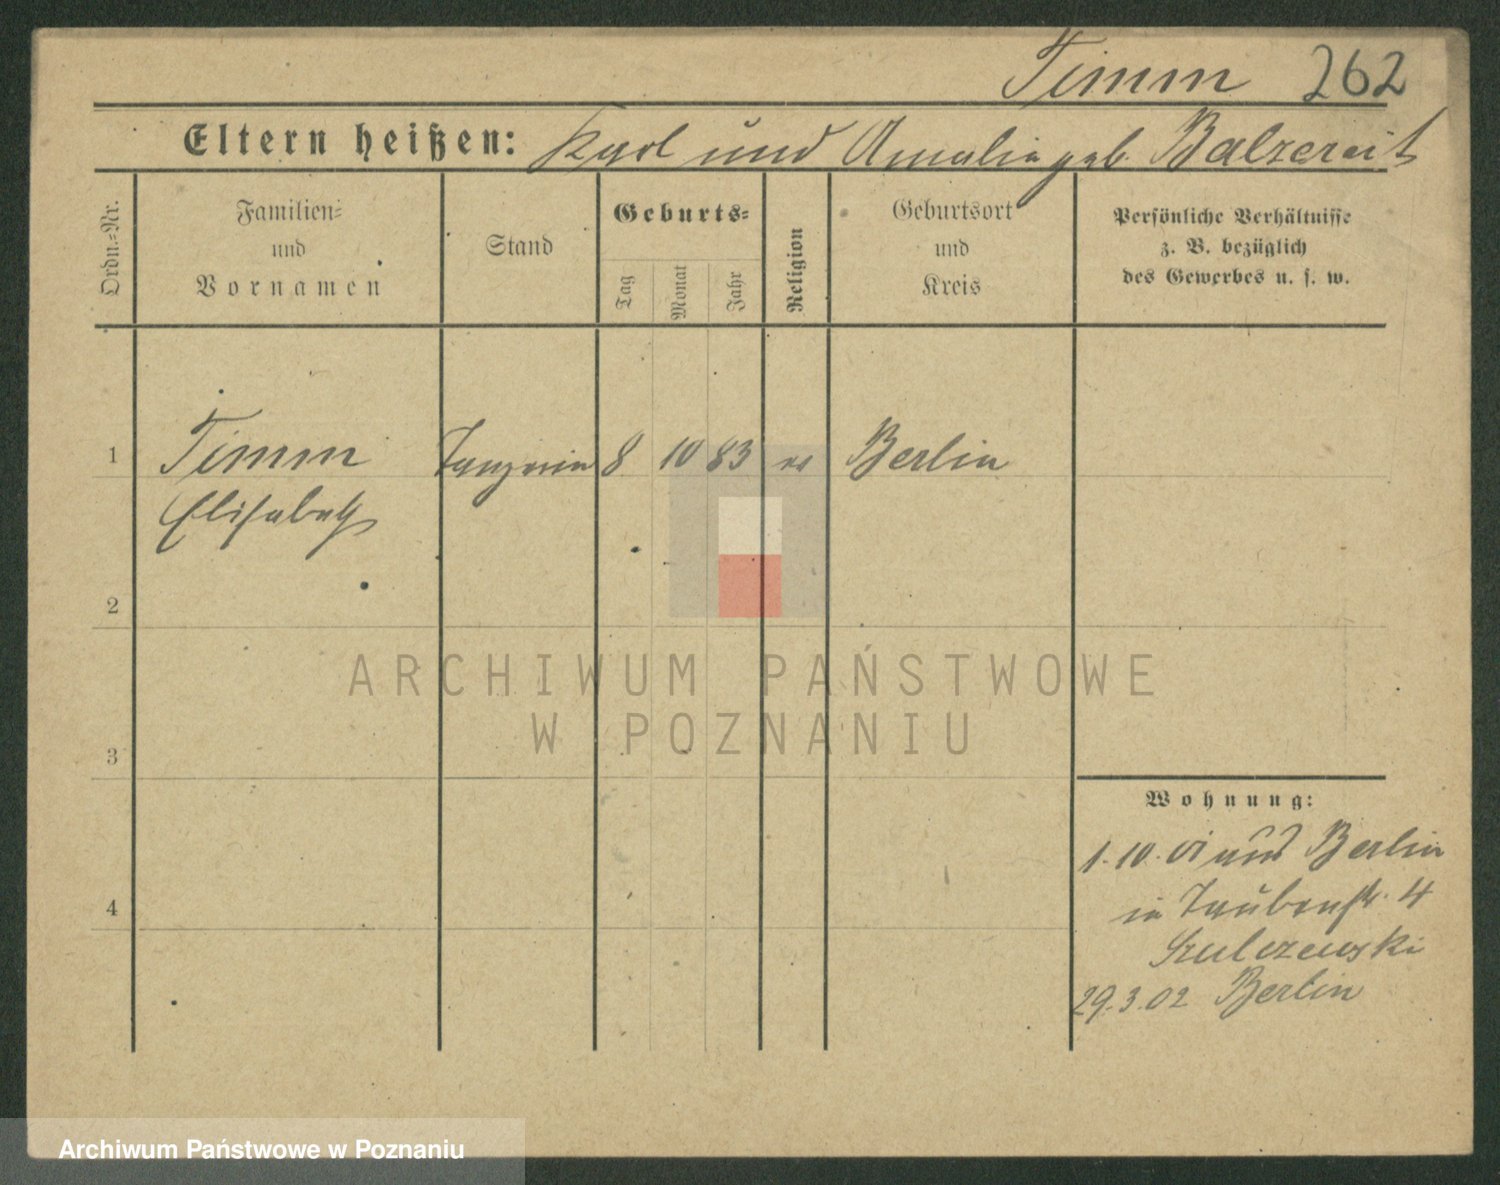 Timm 262
Eltern heißen: Karl und Amalie geb. Balzereit
Ordn.-Nr.
Familien-
und
Vornamen
Stand
Geburts-
Tag
Monat
Jahr
Religion
Geburtsort
und
Kreis
Persönliche Verhältnisse
z. B. bezüglich
des Gewerbes u. s. w.
1 Timm 8 10 83 Berlin
Elisabeth
2
3
4
ARCHIWUM PAŃSTWOWE
W POZNANIU
Wohnung:
1. 10. 01 aus Berlin
in Taubenstr. 4
Szulczewski
29. 3. 02 Berlin
Archiwum Państwowe w Poznaniu